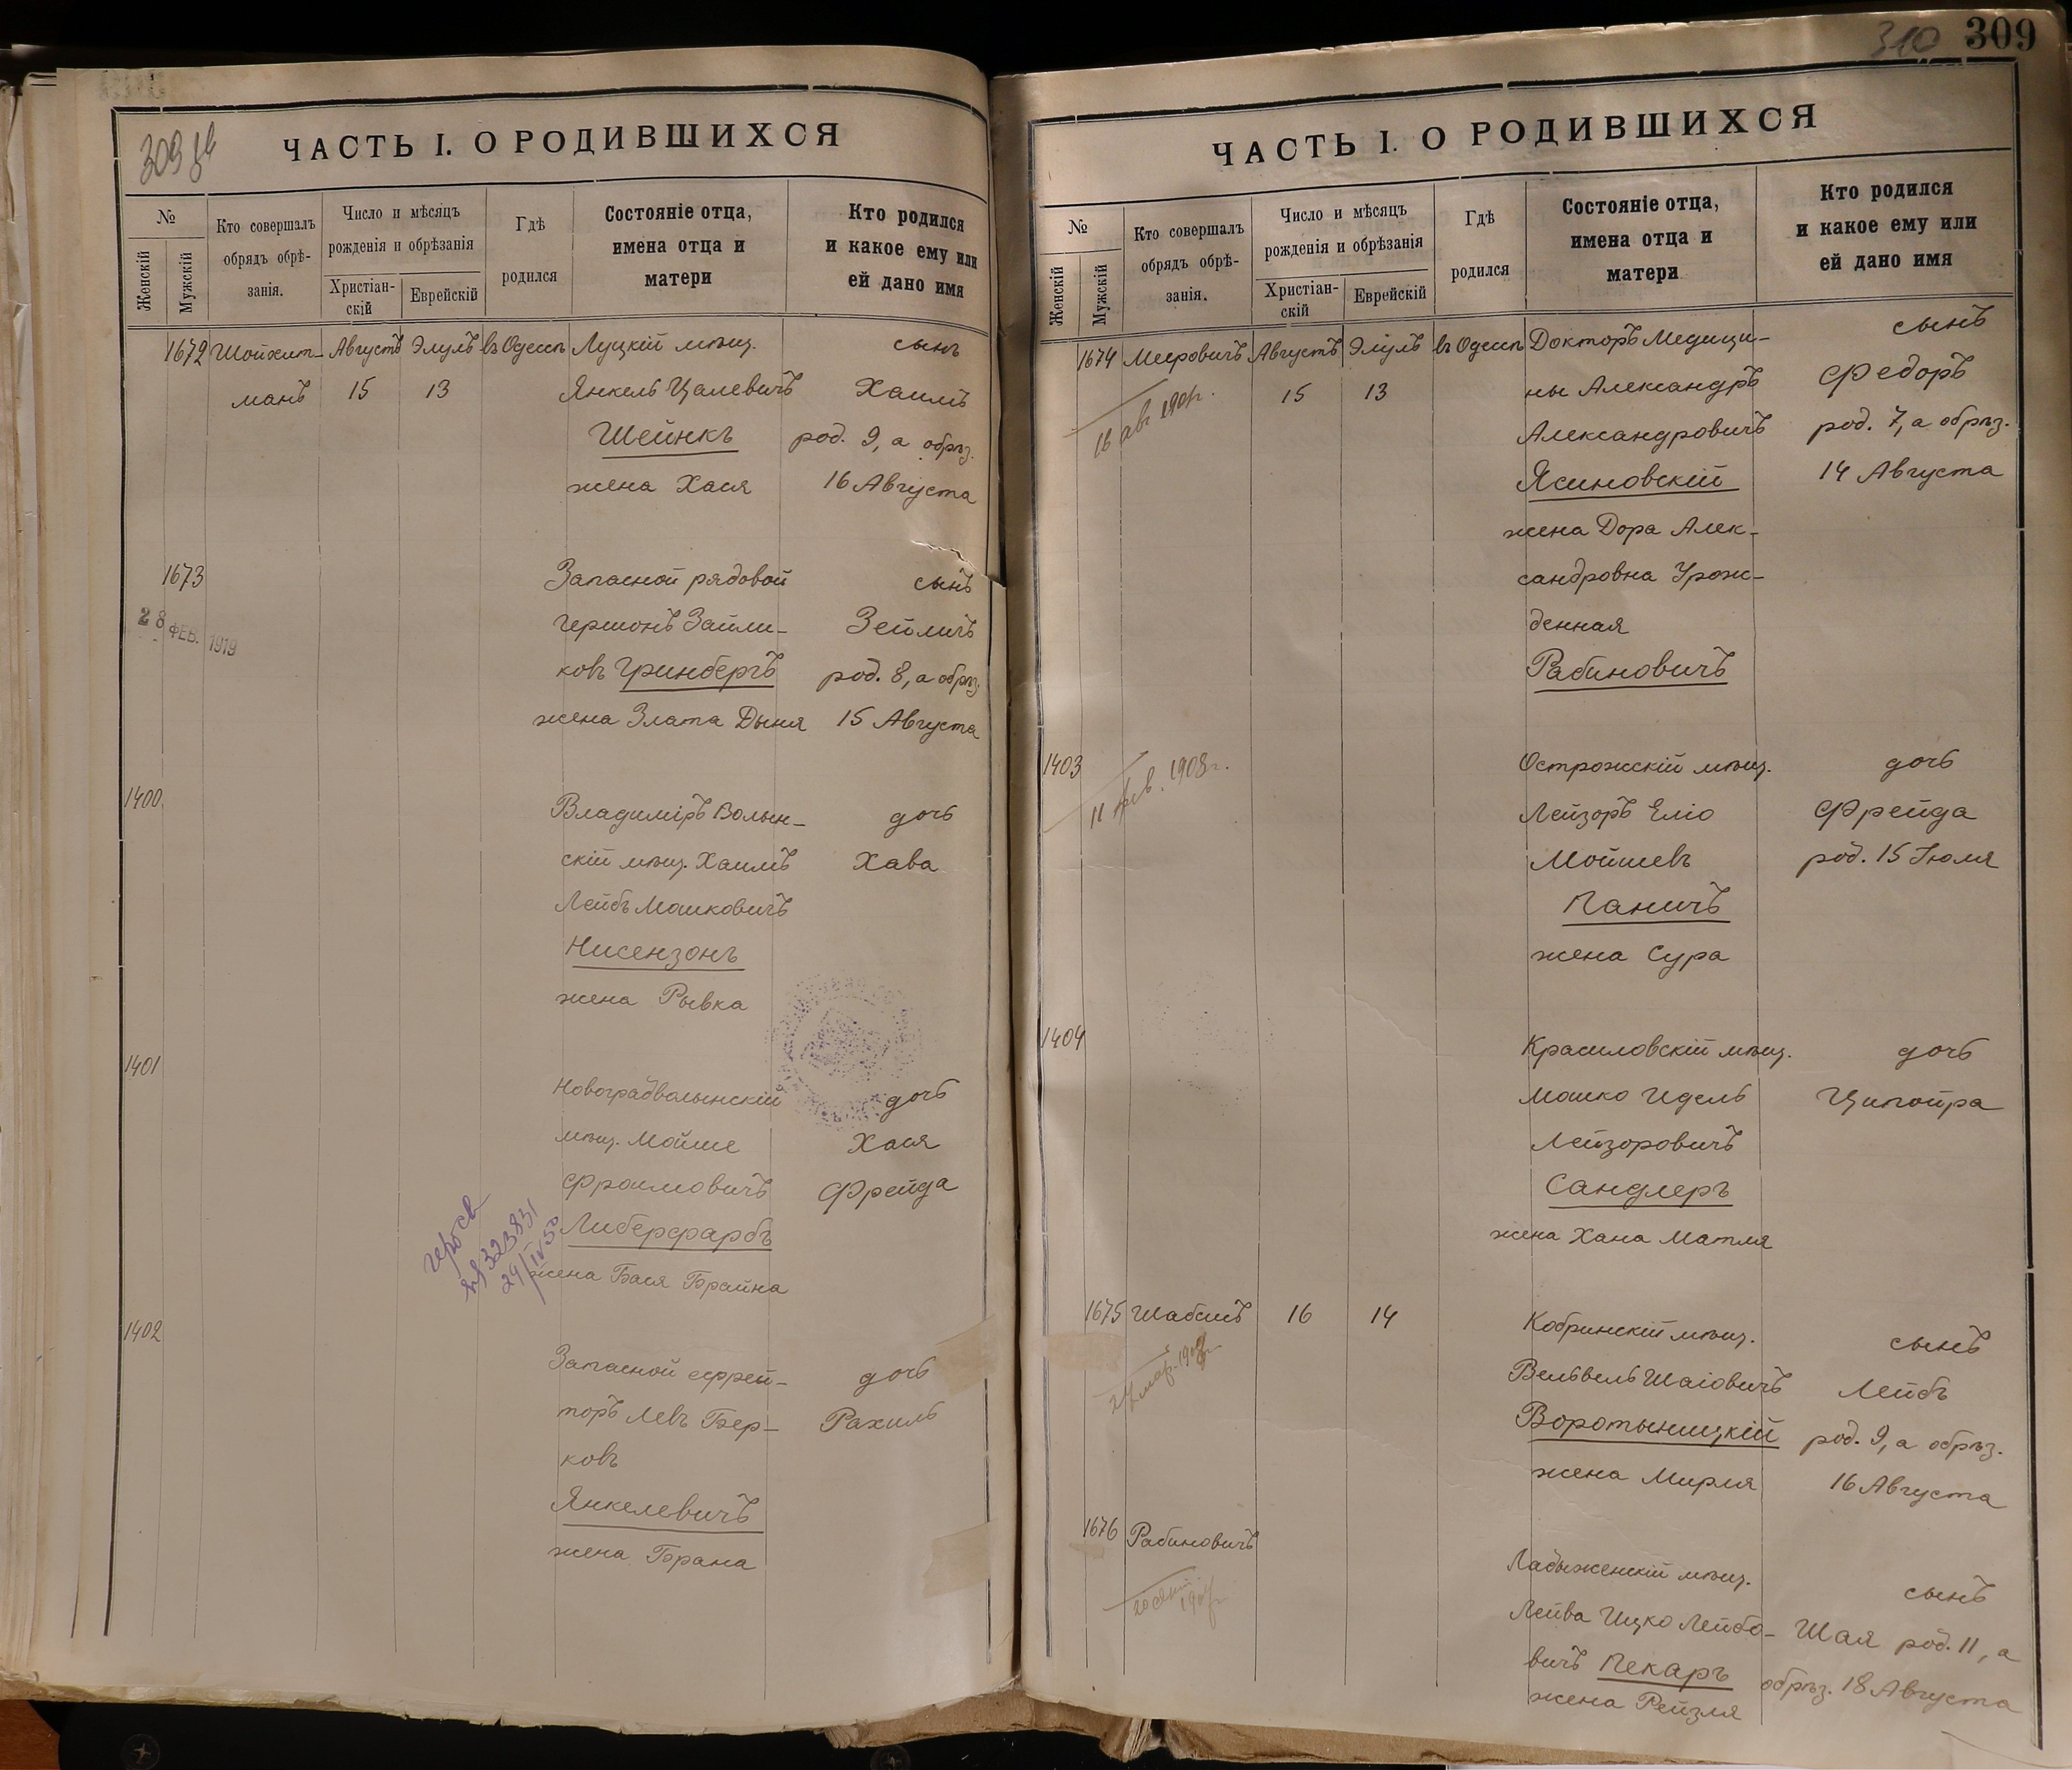 309
ЧАСТЬ I. О РОДИВШИХСЯ
№
Женскій
Мужскій
Кто совершалъ
обрядъ обрѣ-
занія.
Число и мѣсяцъ
рожденія и обрѣзанія
Христіан-
скій
Еврейскій
Гдѣ
родился
Состояніе отца,
имена отца и
матери
Кто родился
и какое ему или
ей дано имя
1672 Шойхет- Августъ Элулъ въ Одессѣ Луцкій мѣщ. сынъ
манъ 15 13 Янкель Цалевичъ Хаимъ
Шейнкъ род. 9, а обрѣз.
жена Хася 16 Августа
1673 Запасной рядовой сынъ
Гершонъ Зайли- Зейлигъ
28 ФЕВ. 1919
ковъ Гринбергъ род. 8, а обрѣз.
жена Злата Дыня 15 Августа
1400 Владиміръ Волын- дочь
скій мѣщ. Хаимъ Хава
Лейбъ Мошковичъ
Нисензонъ
жена Рывка
1401 Новоградволынскій дочь
мѣщ. Мойше Хася
Фроимовичъ Фрейда
Либерфарбъ
323831
жена Бася Брайна
1402 Запасной ефрей- дочь
торъ Левъ Бер- Рахиль
ковъ
Янкелевичъ
жена Брана
310 309
ЧАСТЬ I. О РОДИВШИХСЯ
№
Женскій
Мужскій
Кто совершалъ
обрядъ обрѣ-
занія.
Число и мѣсяцъ
рожденія и обрѣзанія
Христіан-
скій
Еврейскій
Гдѣ
родился
Состояніе отца,
имена отца и
матери
Кто родился
и какое ему или
ей дано имя
1674 Мееровичъ Августъ Элулъ въ Одессѣ Докторъ Медици- сынъ
15 13 ны Александръ Федоръ
16 авг.
Александровичъ род. 7, а обрѣз.
Ясиновскій 14 Августа
жена Дора Алек-
сандровна Урож-
денная
Рабиновичъ
1403 Острожскій мѣщ. дочь
1908г.
Лейзоръ Еліо Фрейда
Мойшевъ род. 15 Іюля
Паничъ
жена Сура
1404 Красиловскій мѣщ. дочь
Мошко Идель Ципойра
Лейзоровичъ
Сандлеръ
жена Хана Матля
1675 Шабсисъ 16 14 Кобринскій мѣщ. сынъ
Вельвель Шаіовичъ Лейбъ
Воротыницкій род. 9, а обрѣз.
жена Мирля 16 Августа
1676 Рабиновичъ Ладыженскій мѣщ. сынъ
Лейва Ицко Лейбо- Шая род. 11, а
вичъ Пекаръ обрѣз. 18 Августа
жена Рейзля